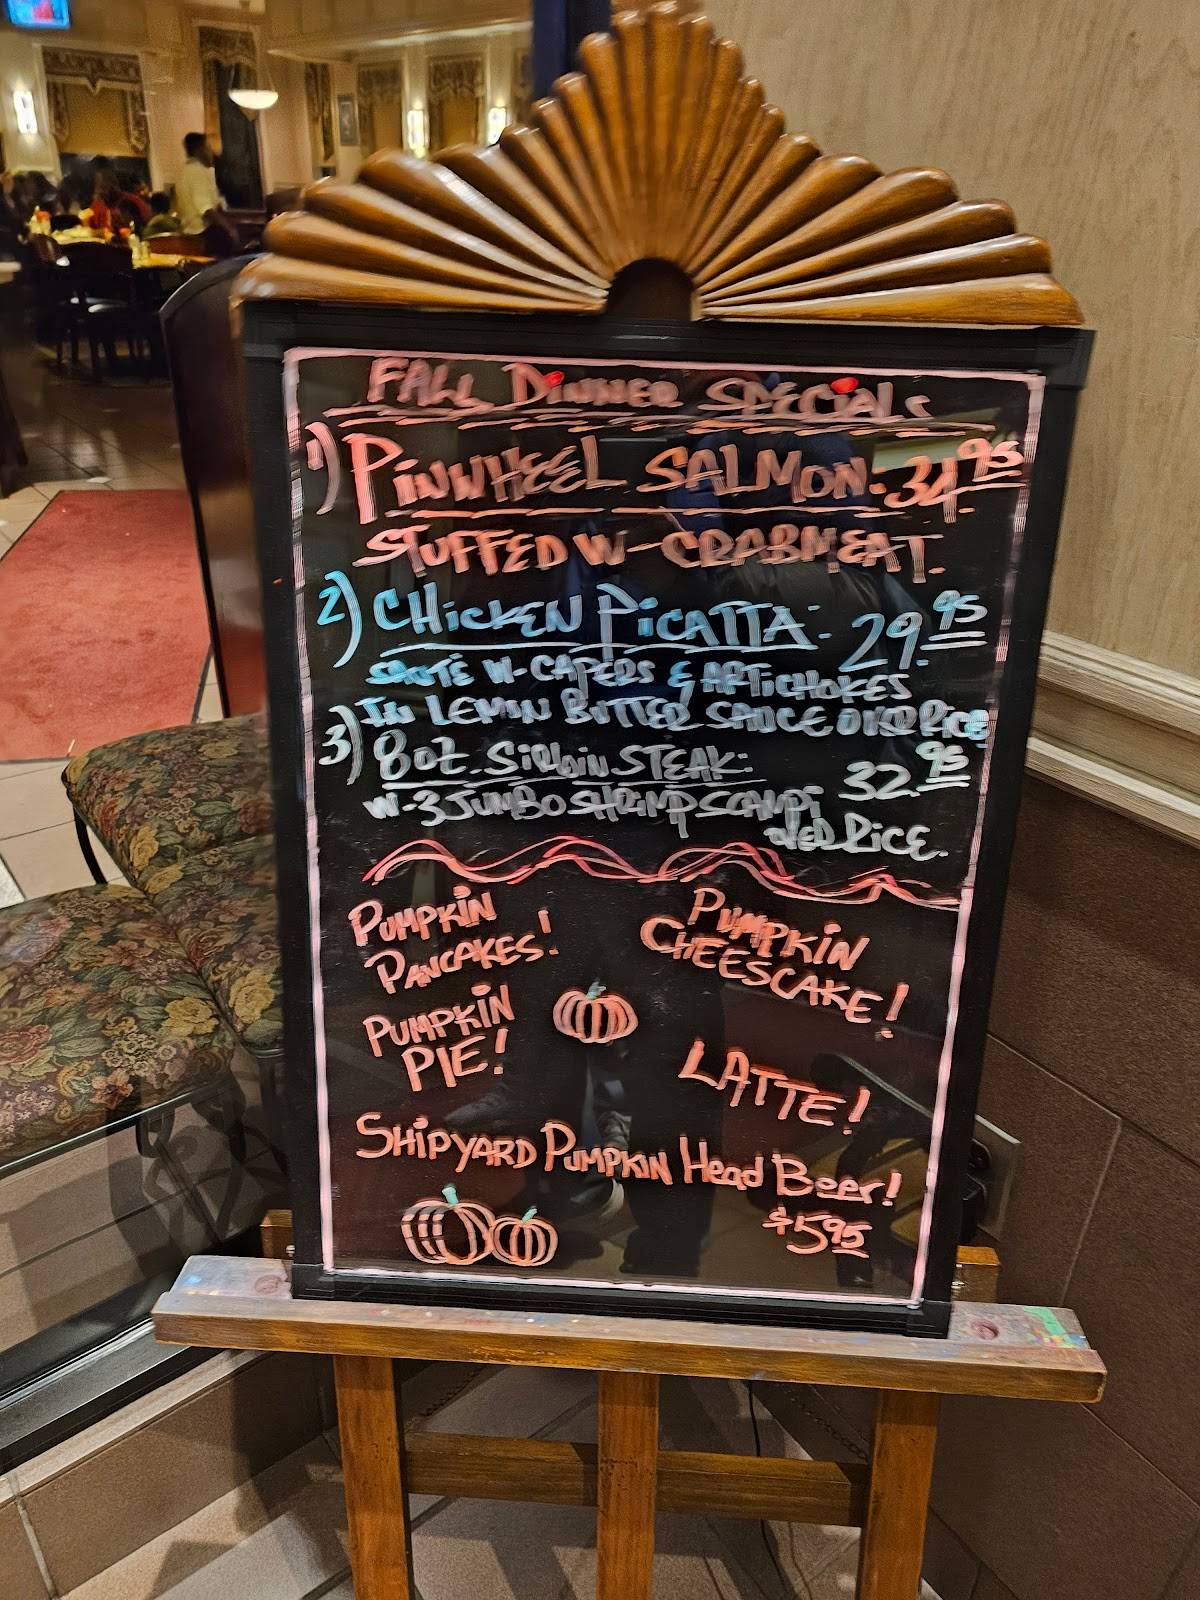 FALL DINNER SPECIALS
1) PINWHEEL SALMON: 34.95
STUFFED W- CRABMEAT.
2) CHICKEN PICATTA: 29.95
SAUTÉ W- CAPERS & ARTICHOKES
IN LEMON BUTTER SAUCE OVER RICE
3) 8oz. SIRLOIN STEAK: 32.95
W- 3 JUMBO SHRIMP SCAMPi
OVER RICE.
PUMPKIN
PANCAKES!
PUMPKIN
CHEESCAKE!
PUMPKIN
PIE!
LATTE!
SHIPYARD PUMPKIN Head Beer!
$5.95